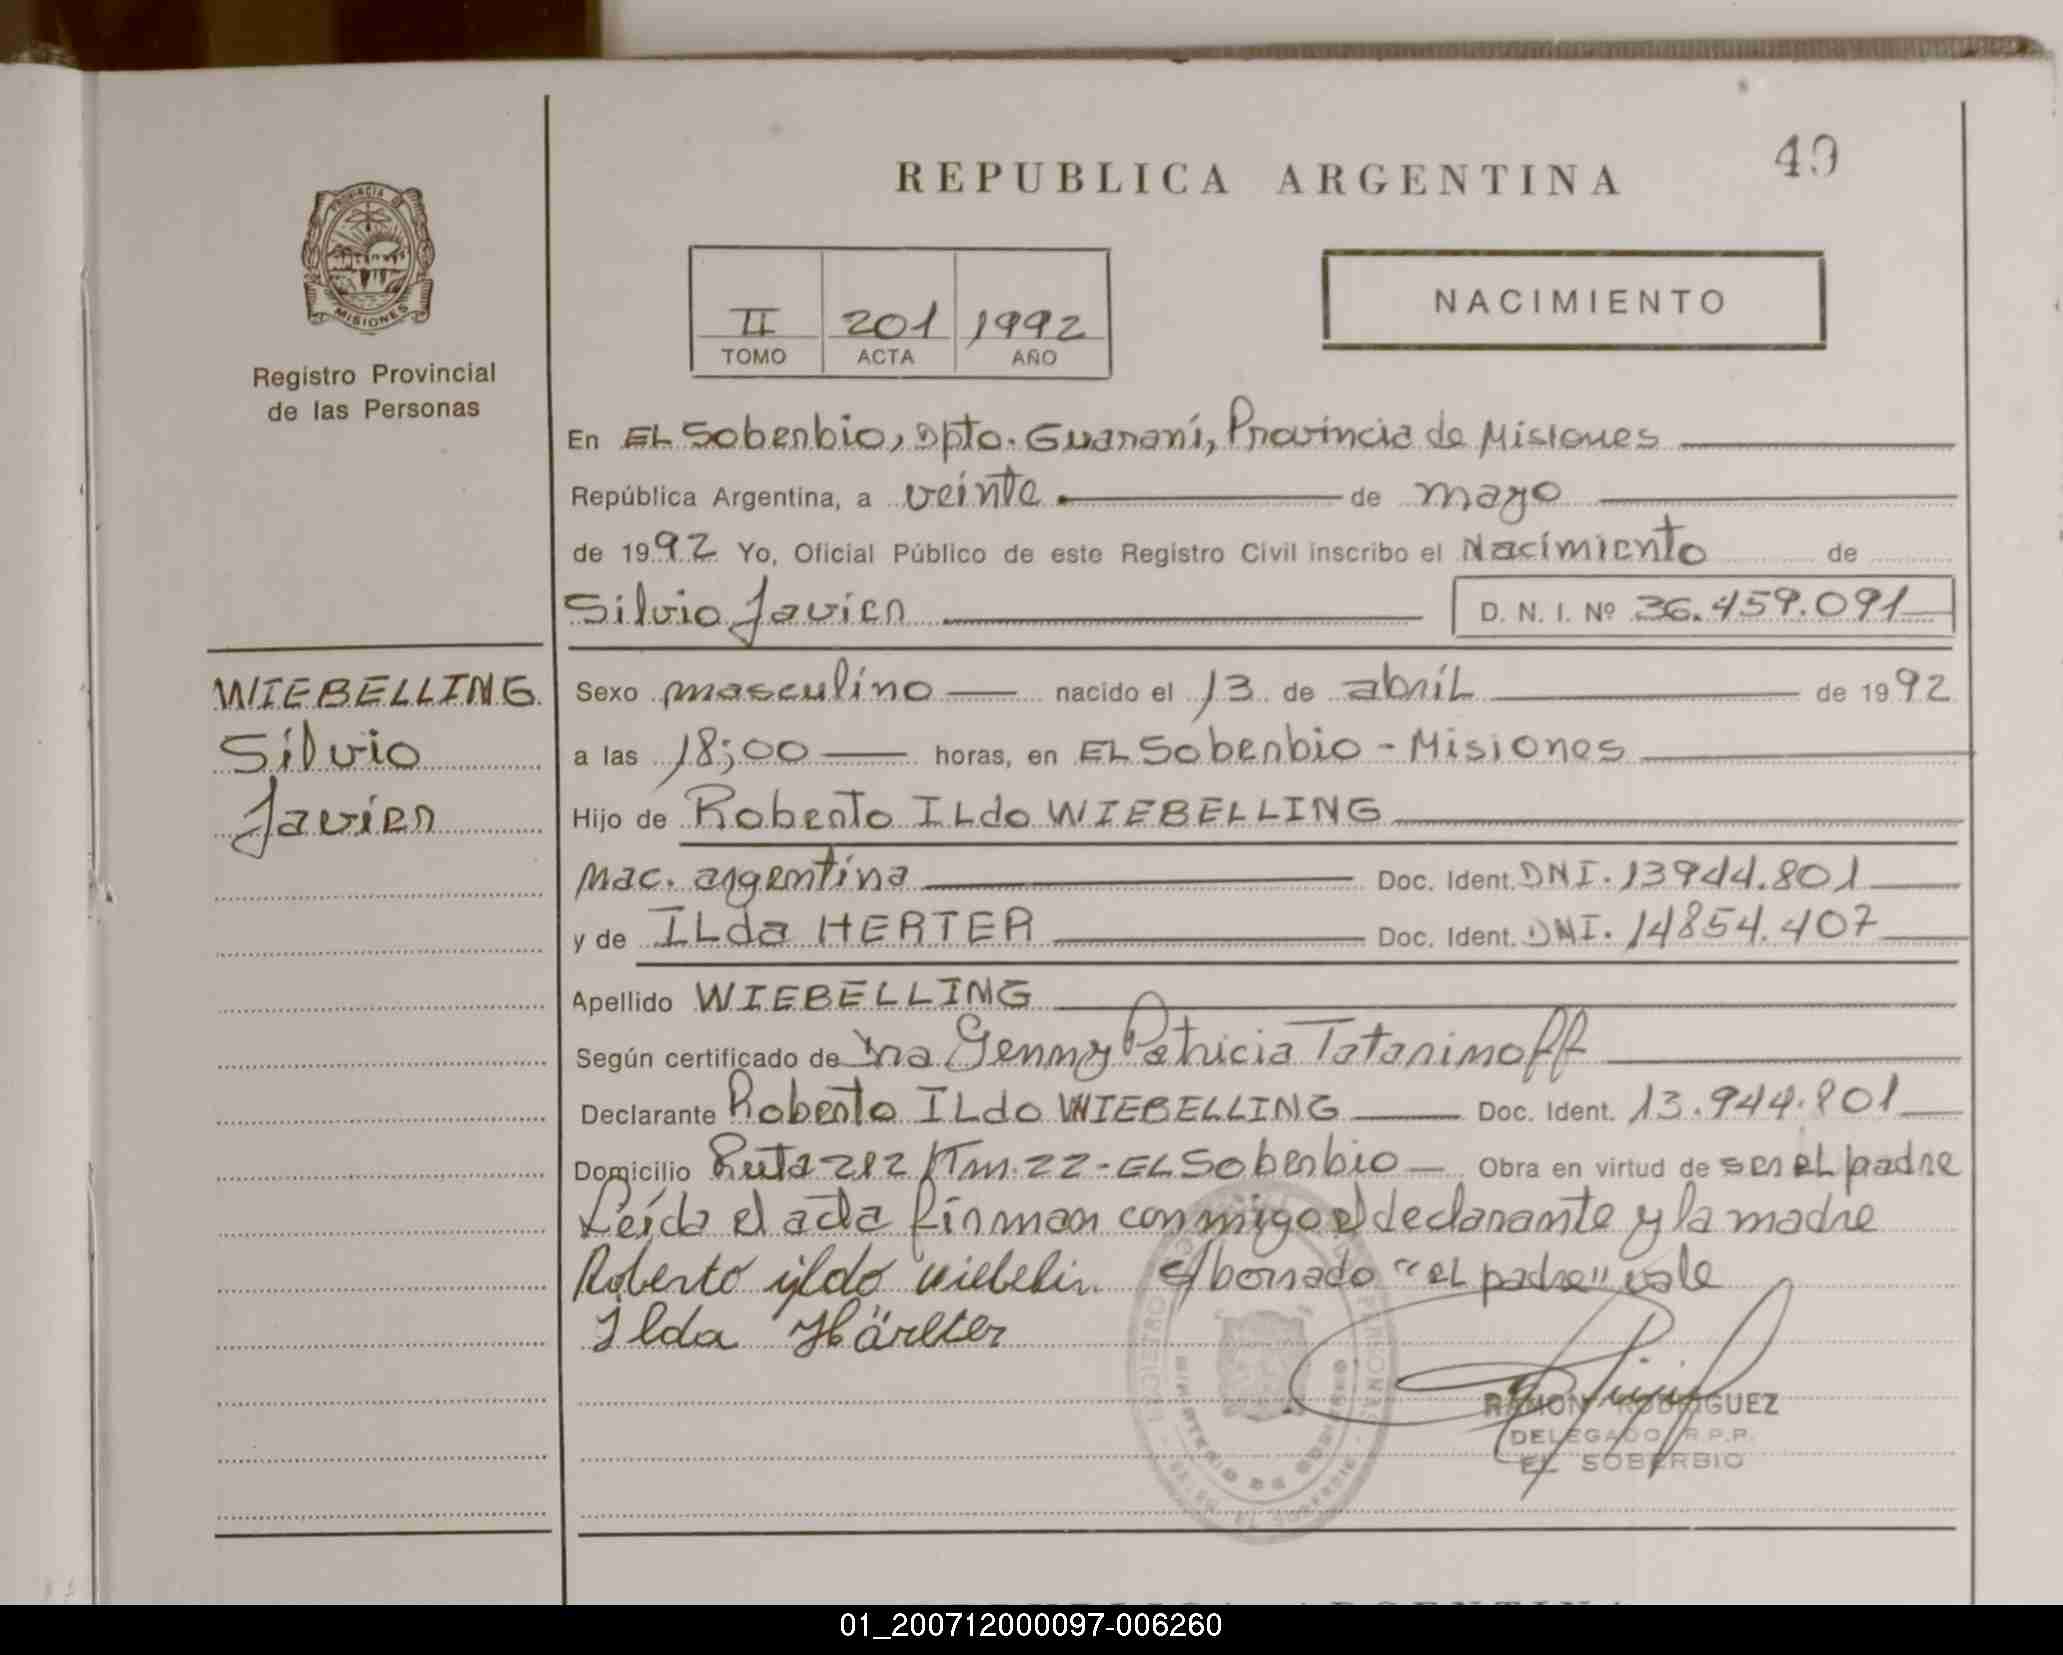 REPUBLICA ARGENTINA
49
PROVINCIA DE
MISIONES
Registro Provincial
de las Personas
II 201 1992
TOMO ACTA AÑO
NACIMIENTO
En EL Soberbio, Dpto. Guaraní, Provincia de Misiones
República Argentina, a veinte de mayo
de 1992 Yo, Oficial Público de este Registro Civil inscribo el Nacimiento de
Silvio Javier D. N. I. Nº 36.459.091
WIEBELLING
Silvio
Javier
Sexo masculino nacido el 13 de abril de 1992
a las 18;00 horas, en EL Soberbio - Misiones
Hijo de Roberto ILdo WIEBELLING
Nac. argentina Doc. Ident. DNI. 13944.801
y de ILda HERTER Doc. Ident. DNI. 14854.407
Apellido WIEBELLING
Según certificado de Genny Patricia Tatarinoff
Declarante Roberto ILdo WIEBELLING Doc. Ident. 13.944.801
Domicilio Ruta 212 Km. 22 - EL Soberbio Obra en virtud de ser eL padre
Leída el acta firman conmigo el declarante y la madre
Roberto ildo wiebelin E/borrado "eL padre" vale
Ilda Härter
RAMON RODRIGUEZ
DELEGADO R.P.P.
EL SOBERBIO
01_200712000097-006260